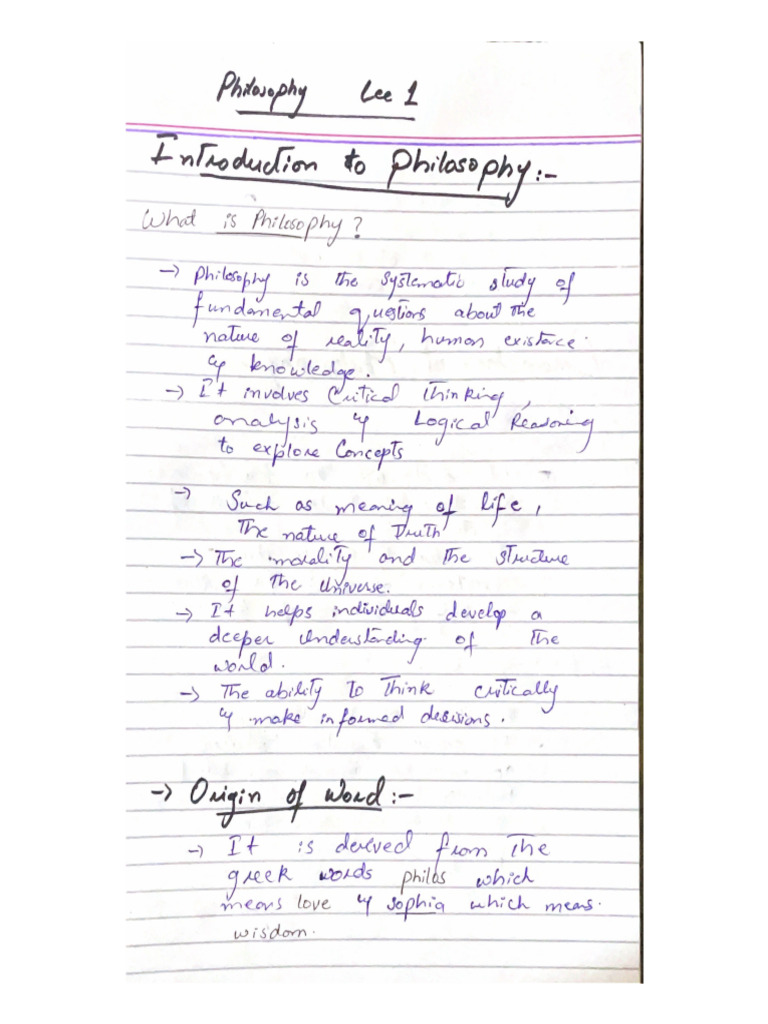 Philosophy Lec 1
Introduction to Philosophy:-
What is Philosophy?
-> Philosophy is the systematic study of
fundamental questions about the
nature of reality, human existence
& knowledge.
-> It involves Critical Thinking,
analysis & Logical Reasoning
to explore Concepts
->
Such as meaning of life,
The nature of Truth
-> The morality and the structure
of the Universe.
-> It helps individuals develop a
deeper Understanding of the
world.
-> The ability To Think critically
& make informed decisions.
-> Origin of Word:-
-> It is derived from The
greek words philos which
means love & sophia which means.
wisdom.